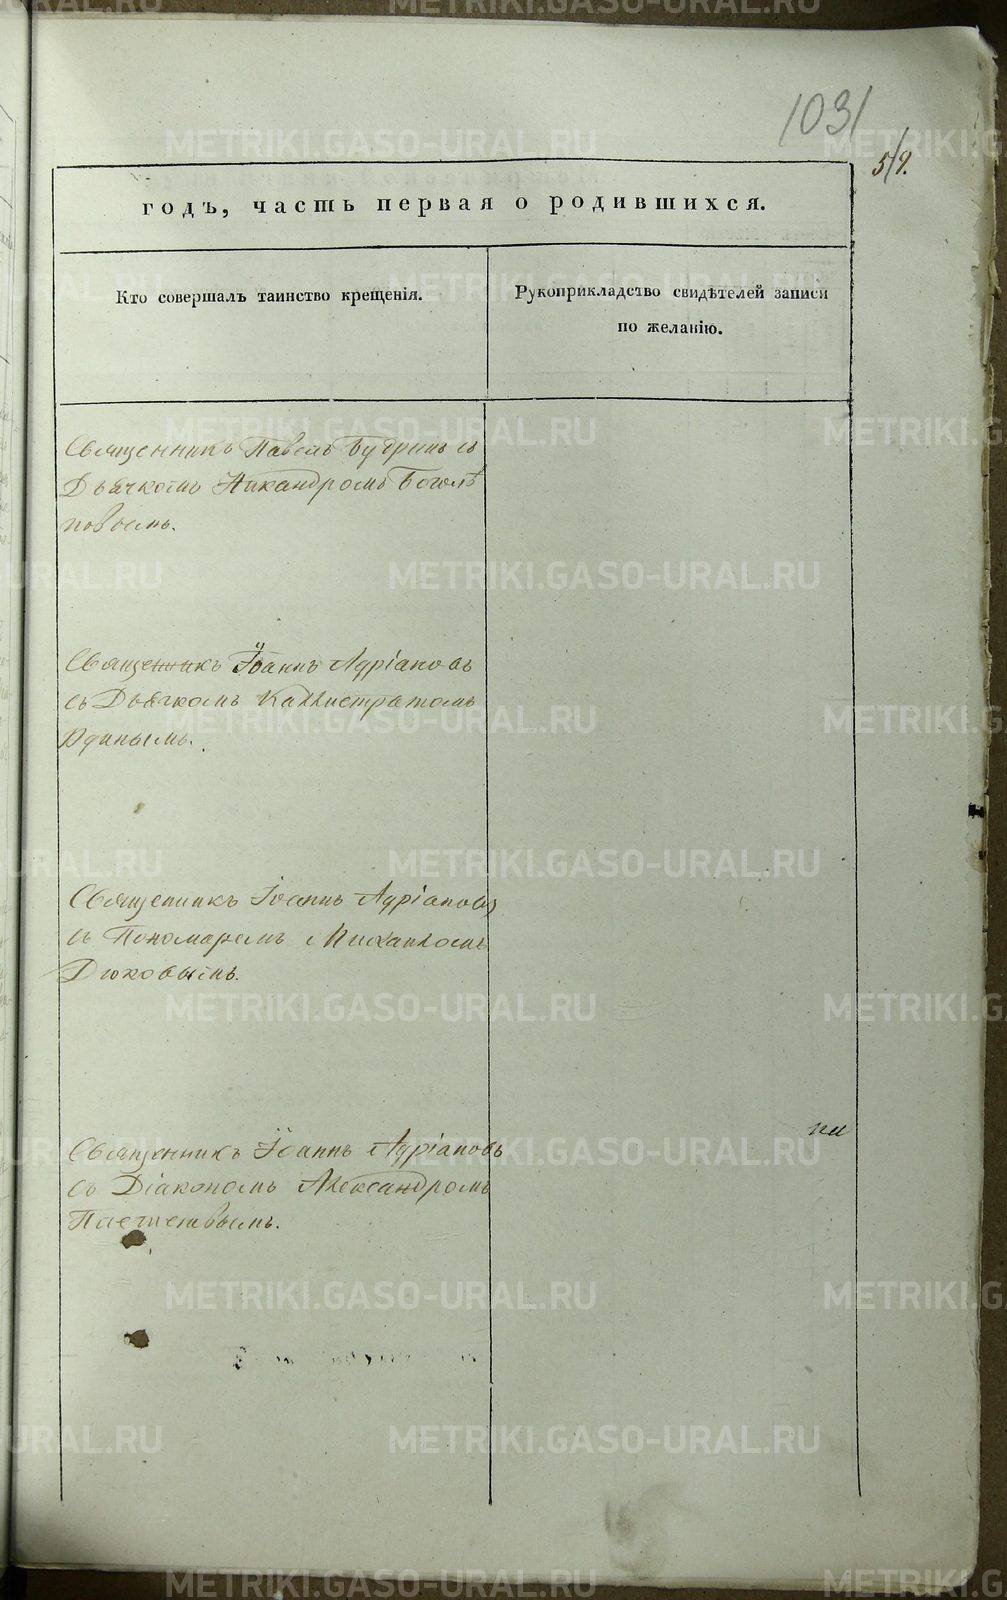 1031
519.
годъ, часть первая о родившихся.
Кто совершалъ таинство крещенія.
Рукоприкладство свидѣтелей записи
по желанію.
Священникъ Павелъ Будринъ съ
Дьячкомъ Никандромъ Боголѣ
повымъ.
Священникъ Іоаннъ Адріановъ
съ Дьячкомъ Каллистратомъ
Юдинымъ.
Священникъ Іоаннъ Адріановъ
съ Пономаремъ Михаиломъ
Дюковымъ.
Священникъ Іоаннъ Адріановъ
съ Діакономъ Александромъ
METRIKI.GASO-URAL.RU